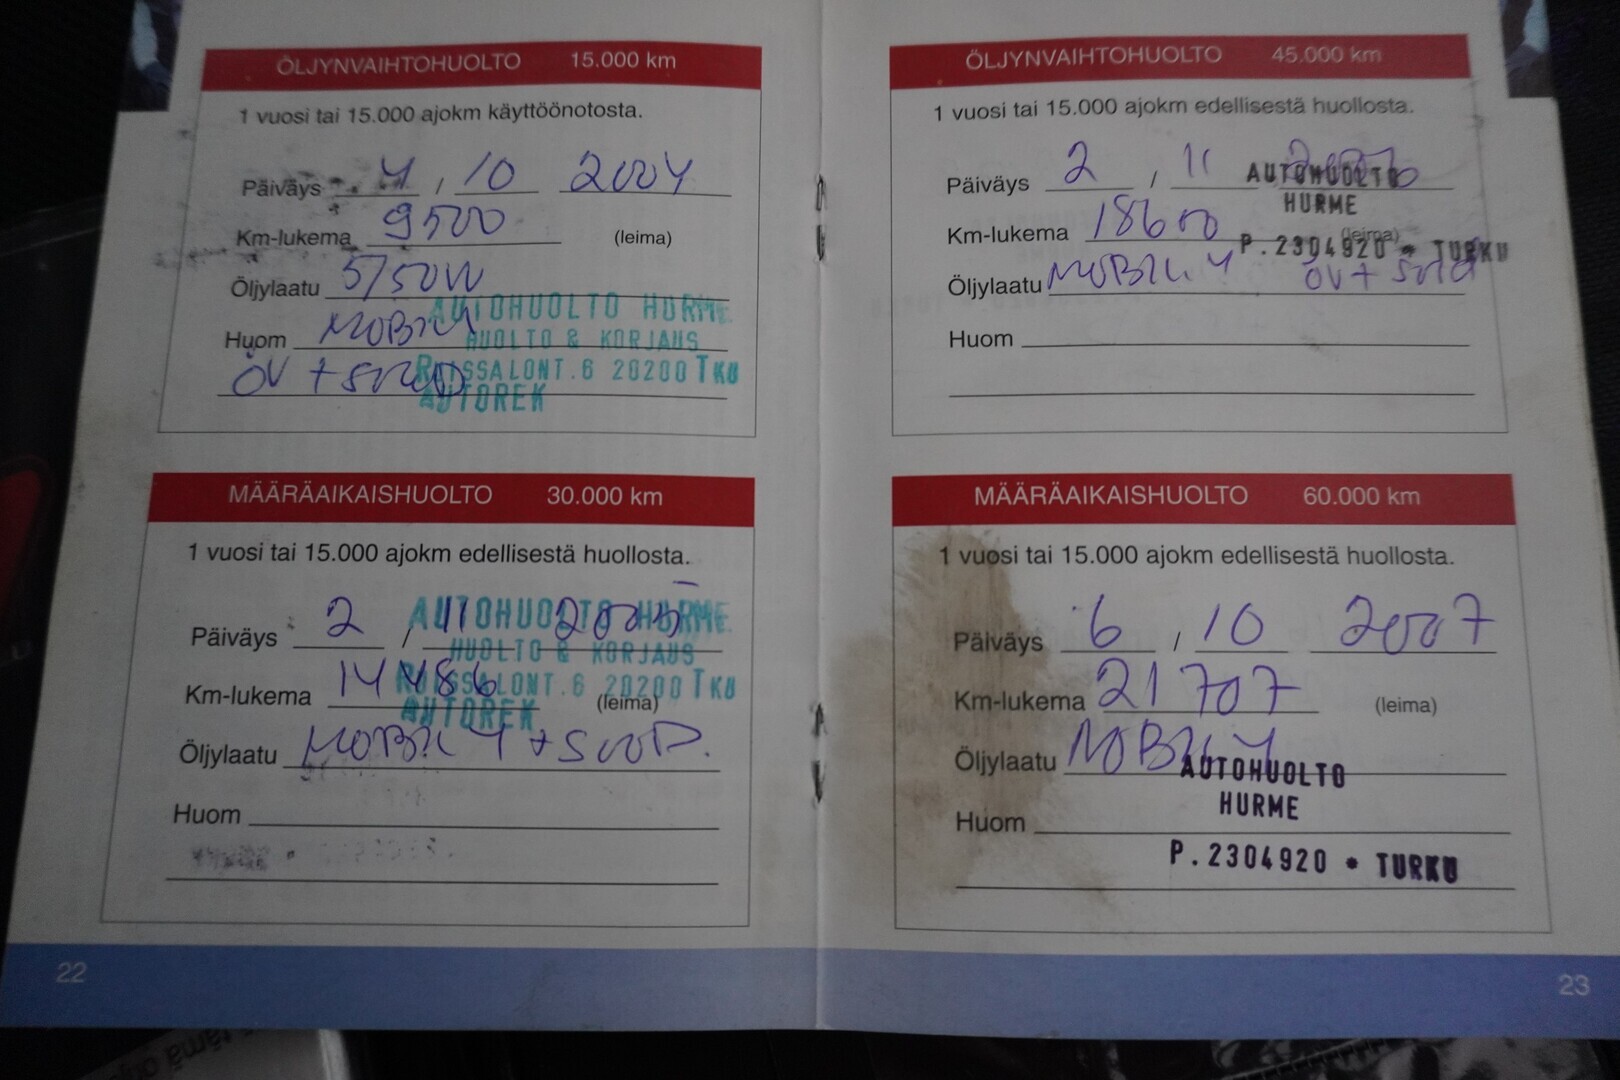 ÖLJYNVAIHTOHUOLTO 15.000 km
1 vuosi tai 15.000 ajokm käyttöönotosta.
Päiväys 4 / 10 2004
Km-lukema 9500 (leima)
Öljylaatu 5/50W
AUTOHUOLTO HURME
Huom MOBIL 1
HUOLTO & KORJAUS
RUISSALONT.6 20200 TKU
ÖV + suod
AUTOREK
MÄÄRÄAIKAISHUOLTO 30.000 km
1 vuosi tai 15.000 ajokm edellisestä huollosta.
AUTOHUOLTO HURME
Päiväys 2 / 11 2005
HUOLTO & KORJAUS
Km-lukema 14486 (leima)
RUISSALONT.6 20200 TKU
AUTOREK
Öljylaatu MOBIL 1 + SUOD.
Huom
22
ÖLJYNVAIHTOHUOLTO 45.000 km
1 vuosi tai 15.000 ajokm edellisestä huollosta.
Päiväys 2 / 11 2006
AUTOHUOLTO
HURME
Km-lukema 18600 (leima)
P.2304920 * TURKU
Öljylaatu MOBIL 1 ÖV +
Huom
MÄÄRÄAIKAISHUOLTO 60.000 km
1 vuosi tai 15.000 ajokm edellisestä huollosta.
Päiväys 6 / 10 2007
Km-lukema 21707 (leima)
Öljylaatu MOBIL 1
AUTOHUOLTO
HURME
Huom
P.2304920 * TURKU
23